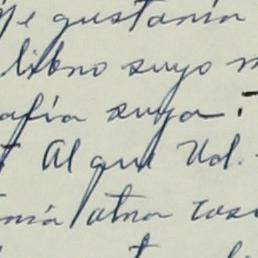 Me gustaría
libro suyo m
afía suya.
Al que Ud.
nía otra cos